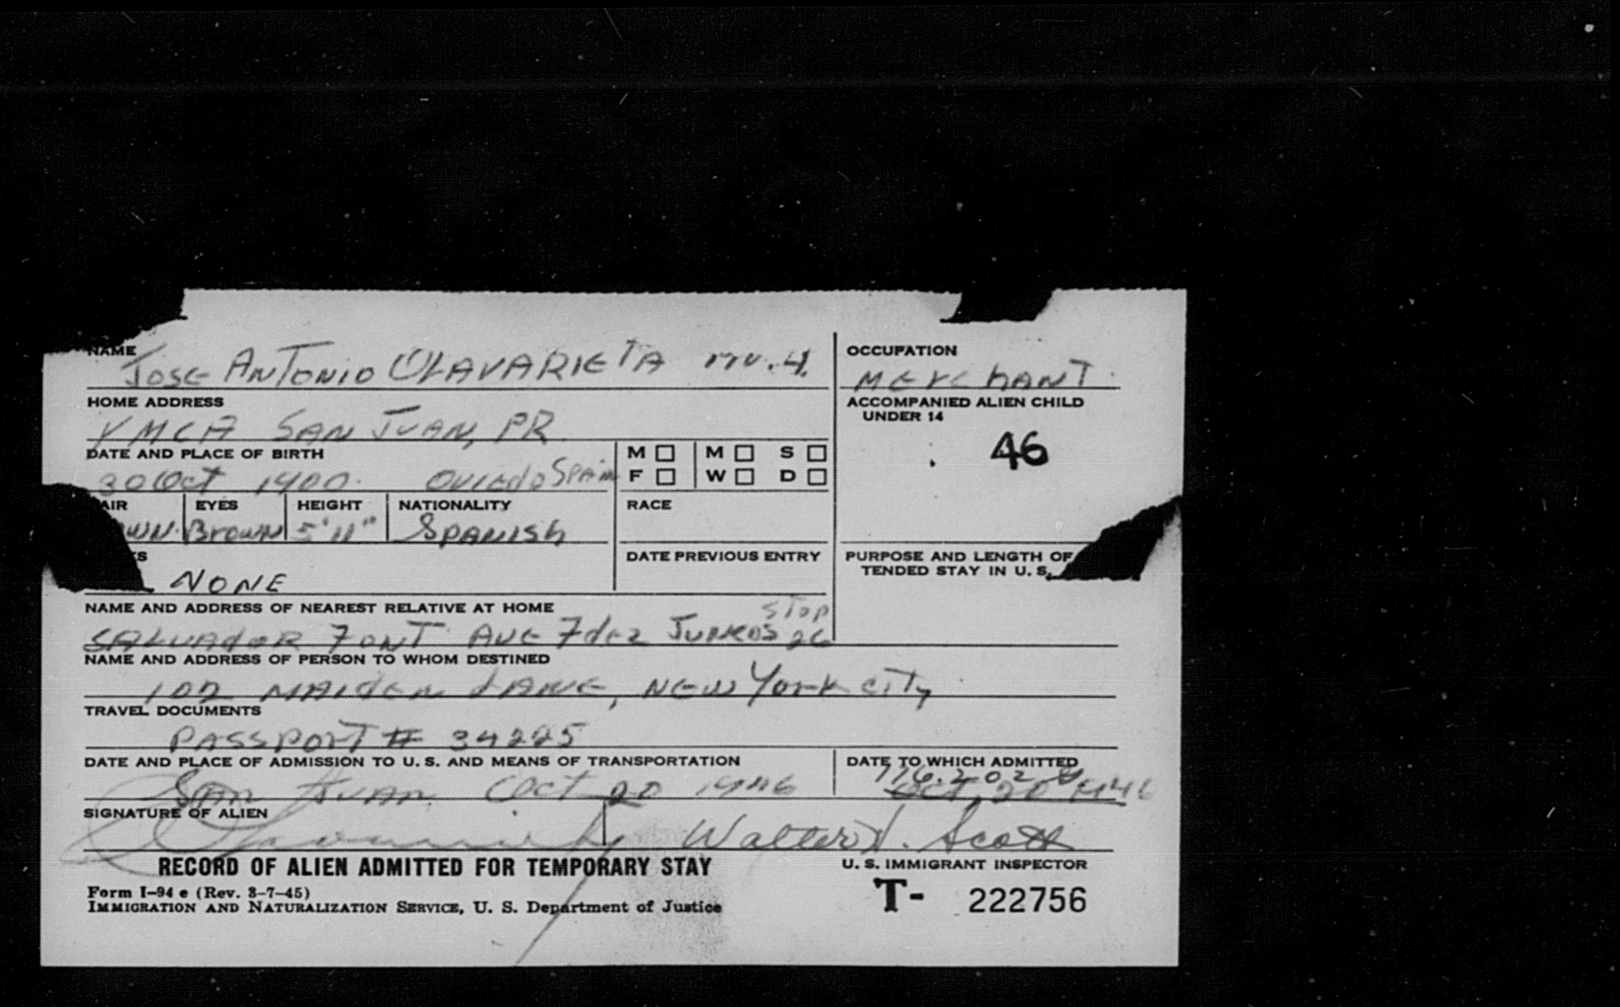 NAME
Jose Antonio OLAVARIETA
OCCUPATION
MErchANT
HOME ADDRESS
YMCA SAN JUAN, PR
ACCOMPANIED ALIEN CHILD
UNDER 14
46
DATE AND PLACE OF BIRTH
30 Oct 1900. Oviedo Spain
M M S
F W D
AIR EYES HEIGHT NATIONALITY RACE
WN. Brown 5'11" SPANISh
S
NONE
DATE PREVIOUS ENTRY
PURPOSE AND LENGTH OF
TENDED STAY IN U. S.
NAME AND ADDRESS OF NEAREST RELATIVE AT HOME
SALVADOR FONT AVE Fdez JUNCOS STOP 26
NAME AND ADDRESS OF PERSON TO WHOM DESTINED
102 MAIDEN LANE, NEW York CITy
TRAVEL DOCUMENTS
PASSPOrT # 34225
DATE AND PLACE OF ADMISSION TO U. S. AND MEANS OF TRANSPORTATION
DATE TO WHICH ADMITTED
San Juan Oct 20 1946
SIGNATURE OF ALIEN
Walter Scott
RECORD OF ALIEN ADMITTED FOR TEMPORARY STAY
U. S. IMMIGRANT INSPECTOR
Form I-94 e (Rev. 3-7-45)
IMMIGRATION AND NATURALIZATION SERVICE, U. S. Department of Justice
T- 222756